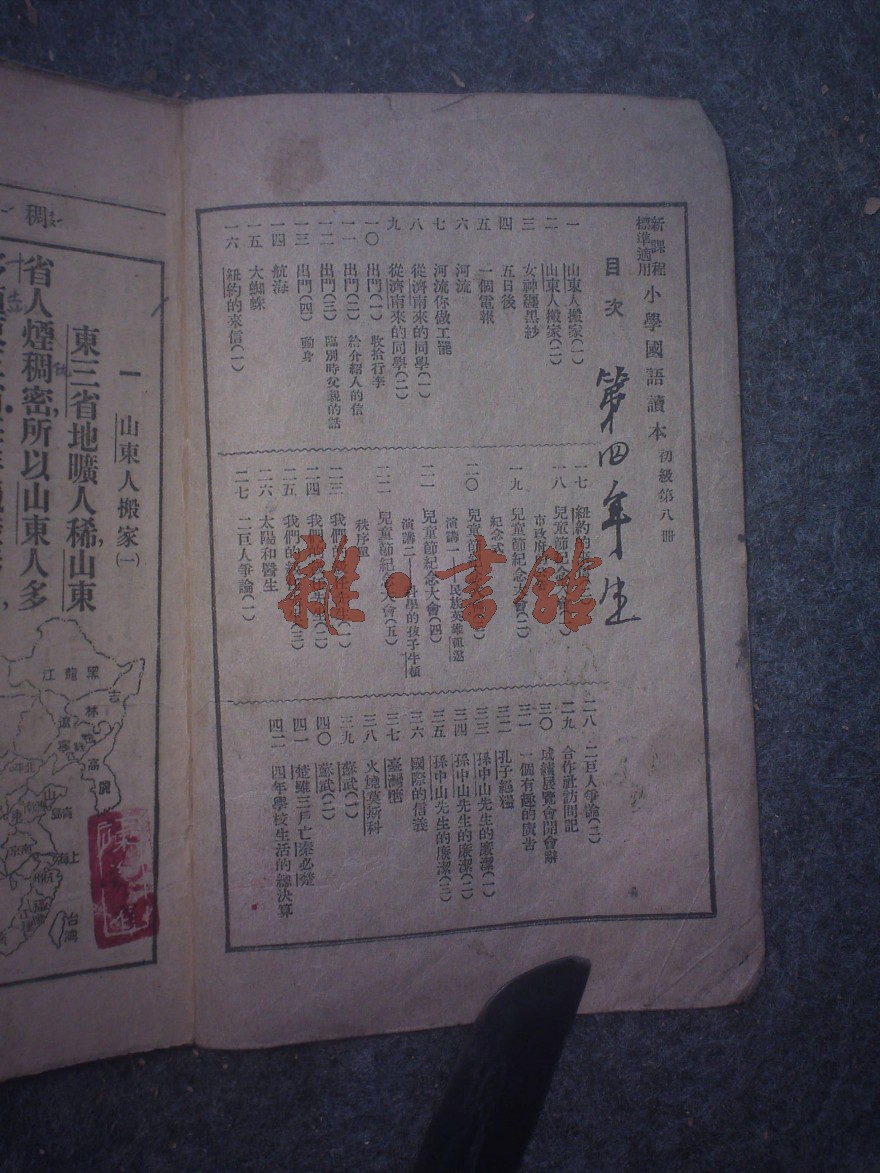 新課程標準適用 小學國語讀本 初級第八冊
目次
第四年生
一 山東人搬家(一)
二 山東人搬家(二)
三 女神纏黑紗
四 五日後
五 一個電報
六 河流
七 河流你做工罷
八 從濟南來的同學(一)
九 從濟南來的同學(二)
一〇 出門(一) 收拾行李
一一 出門(二) 給介紹人的信
一二 出門(三) 臨別時父親的話
一三 出門(四) 動身
一四 航海
一五 大蜘蛛
一六 紐約的來信(一)
一七 紐約的
一八 兒童節紀念
市政府
一九 兒童節紀念大會(二)
紀念式
二〇 兒童節
演講一——民族英雄祖逖
二一 兒童節紀念大會(四)
演講二——科學的孩子牛頓
二二 兒童節紀念大會(五)
秩序單
二三 我們的
二四 我們的
二五 我們的
二六 太陽和醫生
二七 二巨人爭論(一)
二八 二巨人爭論(二)
二九 合作社訪問記
三〇 成績展覽會開會辭
三一 一個有趣的廣告
三二 孔子絕糧
三三 孫中山先生的廉潔(一)
三四 孫中山先生的廉潔(二)
三五 孫中山先生的廉潔(三)
三六 國際的信義
三七 臺灣
三八 火燒莫斯科
三九 蘇武(一)
四〇 蘇武(二)
四一 楚雖三戶亡秦必楚
四二 四年學校生活的總決算
雜·書館
一 山東人搬家(一)
東三省地曠人稀,山東
省人煙稠密,所以山東人多
稠
黑龍江
吉林
遼寧
高麗
山東
青島
南京
上海
杭州
台灣